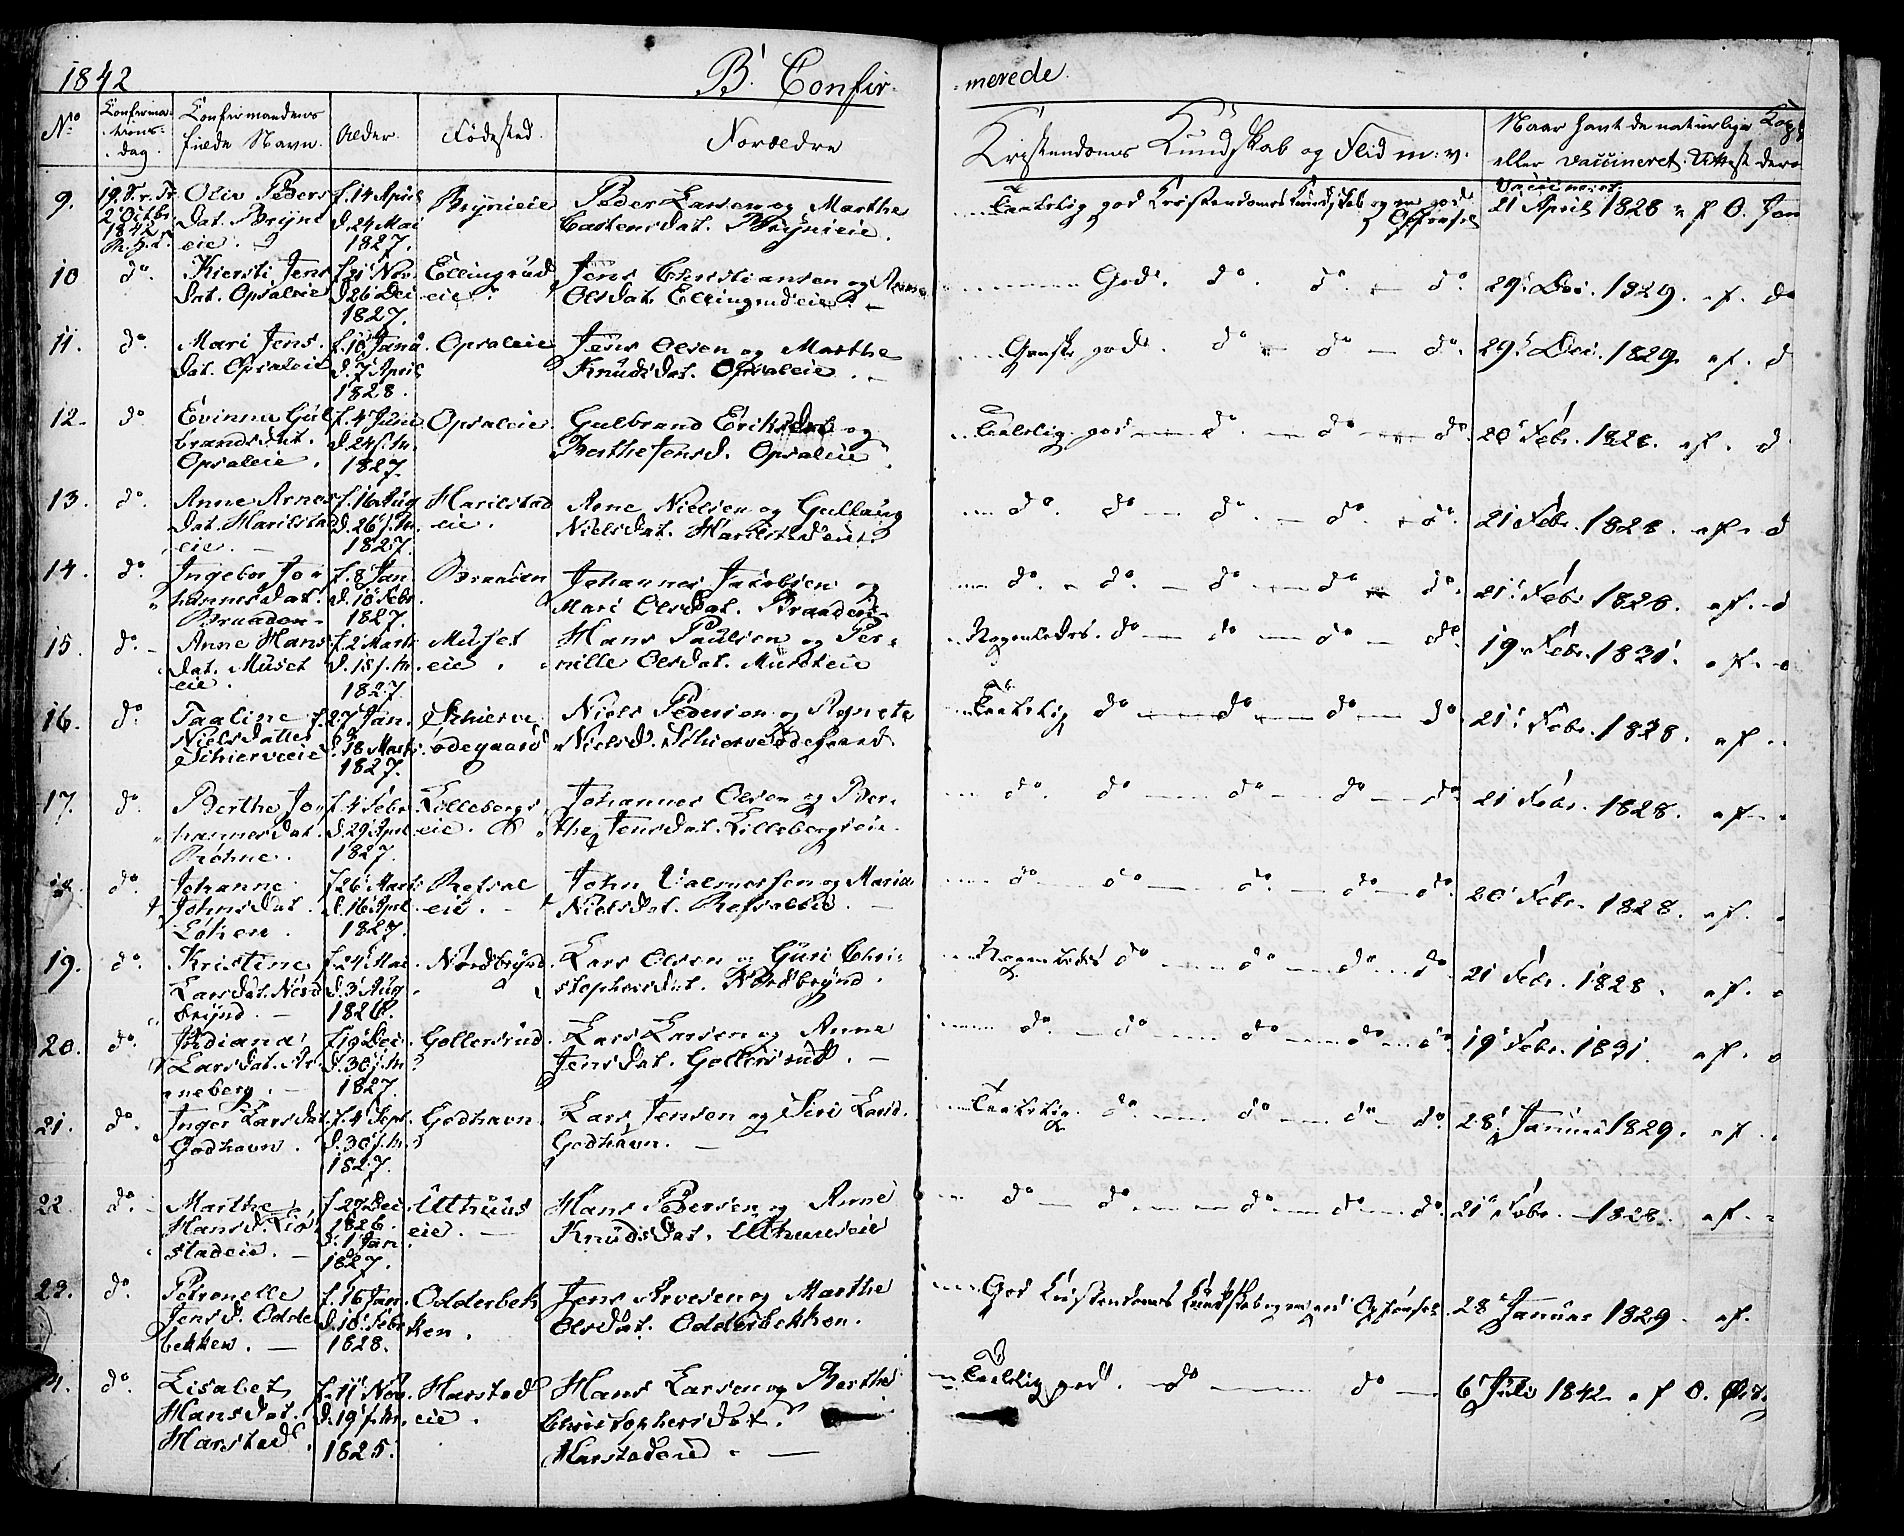 1842
B. Confir-
-merede.
No
Confirma-
tions-
dag.
Confirmandens
fulde Navn.
Alder.
Fødested.
Forældre
Kristendoms Kundskab og Flid m: v.
Naar havt de naturlige Kop
eller vaccineret. Attest der
9.
19. S. e. Tr.
2 Octbr
1842
Oliv Peders
dat. Brynieie.
f. 14 April
d. 24 Mai
1827.
Brynieie
Peder Larsen og Marthe
Castensdat. Brynieie.
Taalelig god Kristendoms Kundskab og
Vaccineret
21 April 1828 af O.
10
do.
Kiersti Jens
dat. Opsaleie
f. 21 Nov.
d. 26 Dec.
1827.
Ellingrud
eie.
Jens Christiansen og Anne
Olsdat. Ellingrudeie.
God. do. do. - do.
29. Dec. 1829. af. do
11.
do.
Mari Jens
dat. Opsaleie
f. 10 Janu
d. 7 April
1828.
Opsaleie
Jens Olsen og Marthe
Knudsdat. Opsaleie.
Ganske god. do - do - do.
29. Dec. 1829. af. d
12.
do
Evinna Gul
brandsdat.
Opsaleie.
f. 4 Juni
d. 24 s. M.
1827.
Opsaleie.
Gulbrand Eriksen og
Berthe Jensd. Opsaleie.
Taalelig god - do - do - do.
20 Febr. 1828. af. d
13.
do.
Anne Arnes
dat. Harilstad
eie.
f. 16 Aug
d. 26 s. M.
1827.
Harilstad
eie.
Arne Nielsen og Gullaug
Nielsdat. Harilstadeie.
do. do - do. - do. - do.
21 Febr. 1828. af. d
14.
do.
Ingebor Jo-
hannesdat.
Braaden
f. 8 Jan.
d. 18 Febr.
1827.
Braaden
Johannes Jacobsen og
Mari Olsdat. Braaden
do. - do. - do - do - do.
21. Febr. 1828. af. d
15
do.
Anne Hans
dat. Muset
eie.
f. 2 Marts
d. 18 s. M.
1827.
Muset
eie.
Hans Paulsen og Per-
nille Olsdat. Museteie
Nogenledes. do - do - do - do.
19 Febr. 1831. af.
16.
do.
Taaline
Nielsdatter
Schierveeie
f. 27 Jan.
d. 18 Marts
1827.
Schierve
ødegaard
Niels Pedersen og Agnete
Nielsd. Schierveødegaard.
Taalelig do - do - do - do.
21. Febr. 1828. af.
17.
do.
Berthe Jo-
hannesdat.
Røhne.
f. 4 Febr
d. 29 Apr.
1827.
Lillebergs
eie.
Johannes Olsen og Ber-
the Jensdat. Lillebergseie.
do. do - do - do - do.
21 Febr. 1828. af.
18.
do.
Johanne
Johnsdat.
Løken.
f. 26 Marts
d. 16 Apr.
1827.
Refsal
eie.
John Valmersen og Maria
Nielsdat. Refsaleie.
do - do - do. - do - do.
20 Febr. 1828. af.
19.
do.
Kristine
Larsdat. Nord
brynd.
f. 24 Mai
d. 3 Aug
1826.
Nordbrynd
Lars Olsen og Guri Chri-
stophersdat. Nordbrynd.
Nogenledes do - do - do - do.
21 Febr. 1828. af.
20.
do.
Indiana
Larsdat. Ar
neberg.
f. 19 Dec.
d. 30 s. M.
1827.
Gollersrud
Lars Larsen og Anne
Jensdat. Gollersrud.
do. - do - do - do - do.
19 Febr. 1831. af.
21.
do.
Inger Larsdat.
Godhavn.
f. 4 Sept.
d. 30 s. M.
1827.
Godhavn.
Lars Jensen og Siri Larsd.
Godhavn.
Taalelig. do. - do - do - do.
28. Januar 1829. af.
22.
do.
Marthe
Hansd.
stadeie.
f. 27 Dec.
1826.
d. 1 Jan.
1827.
Uthuus
eie.
Hans Pedersen og Anne
Knudsdat. Uthuuseie
do - do. - do - do - do.
21 Febr. 1828. af.
23.
do.
Petronelle
Jensd. Odder
bekken.
f. 16 Jan.
d. 10 Febr.
1828.
Odderbek
ken.
Jens Arvesen og Marthe
Olsdat. Odderbekken.
God Kristendoms Kundskab og god Opførsel
28 Januar 1829. af.
24.
do.
Lisabet
Hansdat.
Harstad.
f. 11 Nov
d. 19 s. M.
1825.
Harstad
eie.
Hans Larsen og Berthe
Christophersdat.
Harstadeie.
Taalelig god. do - do
6 Juli 1842 af O.